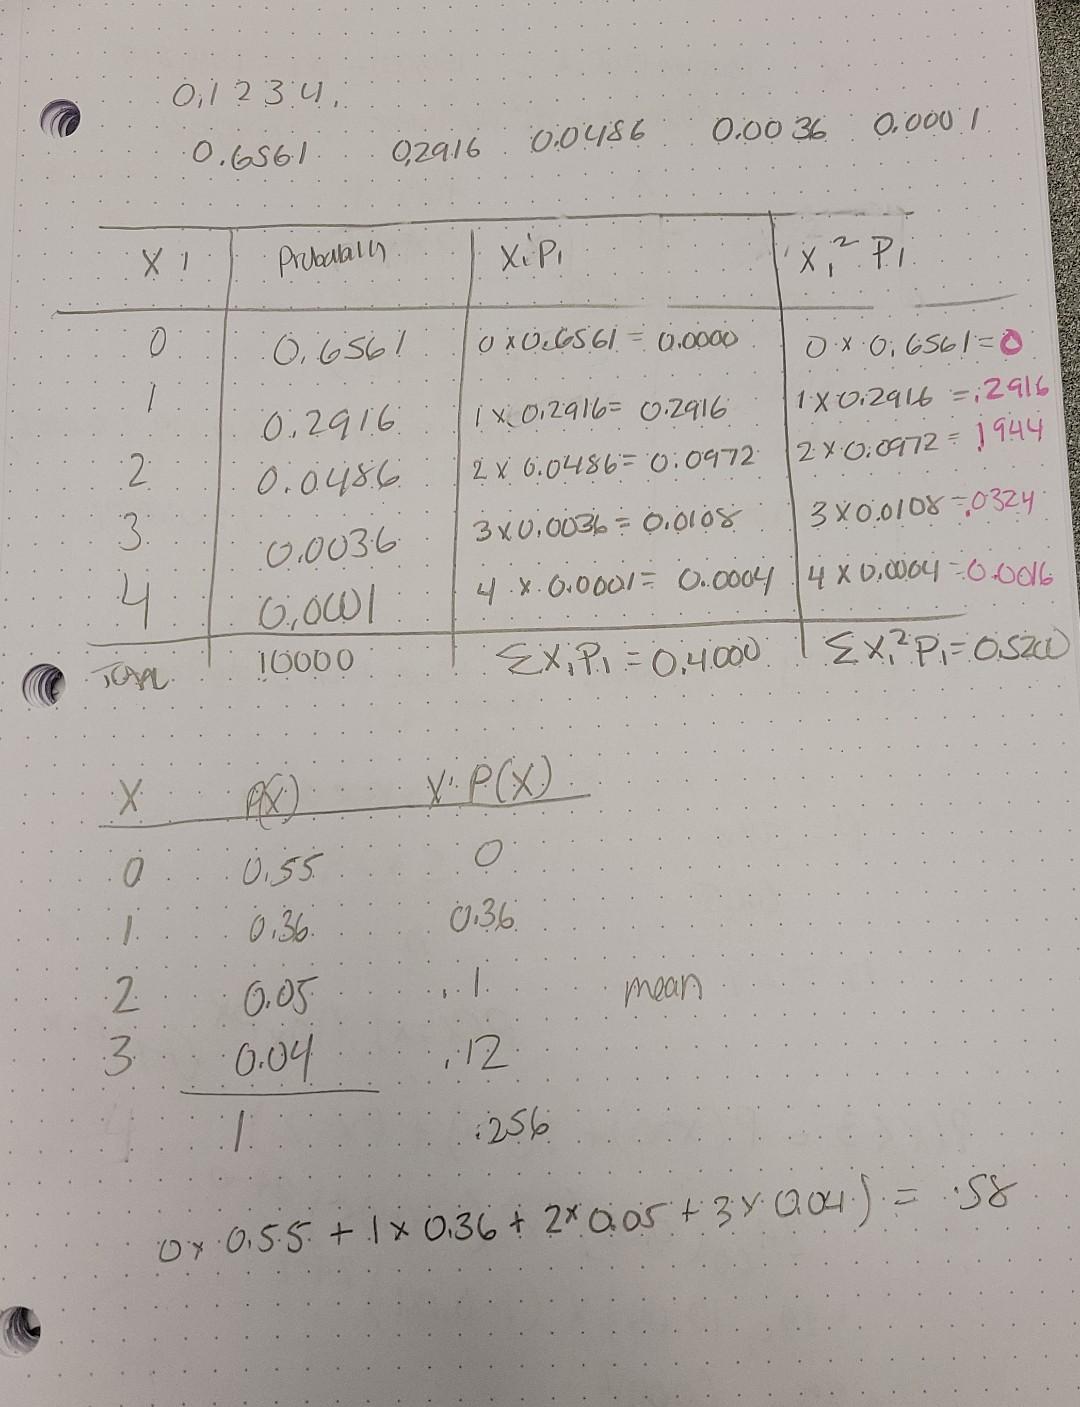 0,1 2 3 4,
0.6561 0,2916 0.0486 0.0036 0.0001
Xi Probabality Xi Pi Xi² Pi
0 0.6561 0 x 0.6561 = 0.0000 0 x 0.6561 = 0
1 0.2916 1 x 0.2916 = 0.2916 1 x 0.2916 = .2916
2 0.0486 2 x 0.0486 = 0.0972 2 x 0.0972 = .1944
3 0.0036 3 x 0.0036 = 0.0108 3 x 0.0108 = .0324
4 0.0001 4 x 0.0001 = 0.0004 4 x 0.0004 = 0.0016
TOTAL 10000 ΣXiPi = 0.4000 ΣXi²Pi = 0.5200
X P(X) X·P(X)
0 0.55 0
1 0.36 0.36
2 0.05 .1 mean
3 0.04 .12
1 .256
0x 0.55 + 1x 0.36 + 2x 0.05 + 3x 0.04) = .58